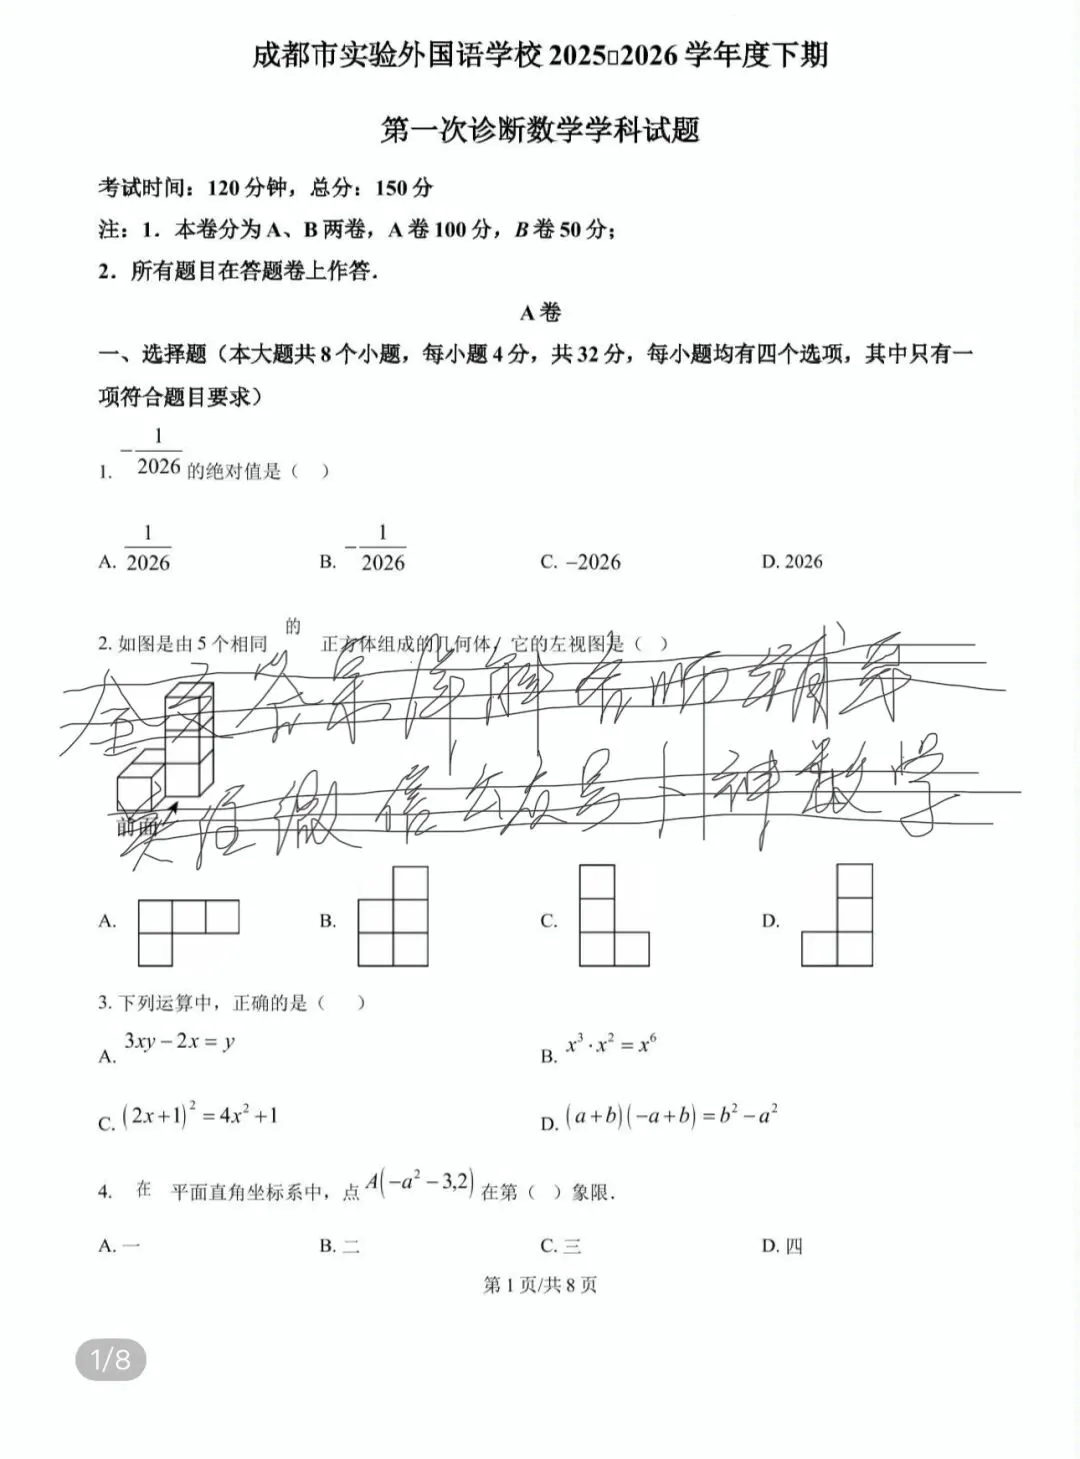 成都市实验外国语学校 2025▯2026 学年度下期
第一次诊断数学学科试题
考试时间：120 分钟，总分：150 分
注：1．本卷分为 A、B 两卷，A 卷 100 分，B 卷 50 分；
2．所有题目在答题卷上作答．
A 卷
一、选择题（本大题共 8 个小题，每小题 4 分，共 32 分，每小题均有四个选项，其中只有一
项符合题目要求）
1. -1/2026 的绝对值是（ ）
A. 1/2026 B. -1/2026 C. −2026 D. 2026
2. 如图是由 5 个相同的正方体组成的几何体，它的左视图是（ ）
前面
A. B. C. D.
3. 下列运算中，正确的是（ ）
A. 3xy − 2x = y B. x³·x² = x⁶
C. (2x+1)² = 4x² +1 D. (a+b)(−a+b) = b² − a²
4. 在 平面直角坐标系中，点 A(−a² −3,2) 在第（ ）象限．
A. 一 B. 二 C. 三 D. 四
第 1 页/共 8 页
1/8